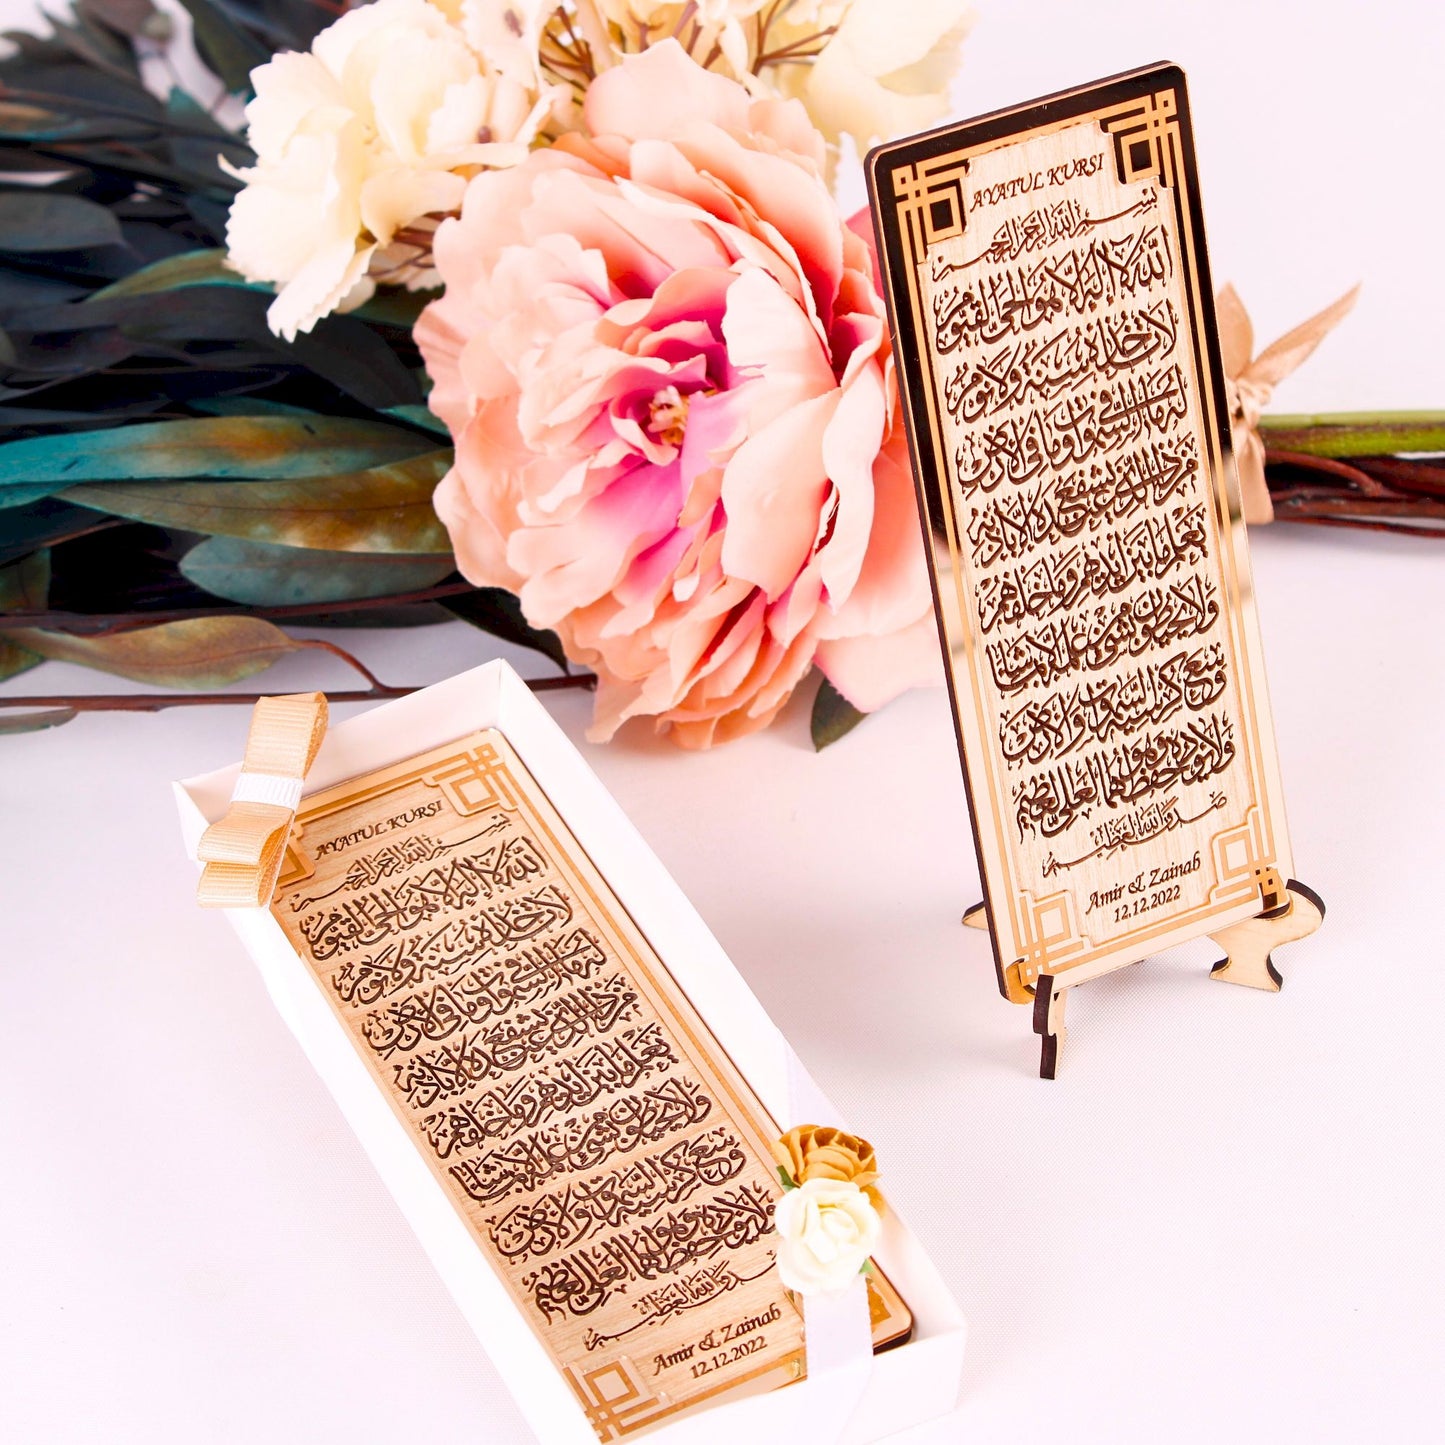 AYATUL KURSI
بسم الله الرحمن الرحيم
الله لا إله إلا هو الحي القيوم
لا تأخذه سنة ولا نوم
له ما في السموات وما في الأرض
من ذا الذي يشفع عنده إلا بإذنه
يعلم ما بين أيديهم وما خلفهم
ولا يحيطون بشيء من علمه إلا بما شاء
وسع كرسيه السموات والأرض
ولا يؤده حفظهما وهو العلي العظيم
صدق الله العظيم
Amir & Zainab
12.12.2022
AYATUL KURSI
بسم الله الرحمن الرحيم
الله لا إله إلا هو الحي القيوم
لا تأخذه سنة ولا نوم
له ما في السموات وما في الأرض
من ذا الذي يشفع عنده إلا بإذنه
يعلم ما بين أيديهم وما خلفهم
ولا يحيطون بشيء من علمه إلا بما شاء
وسع كرسيه السموات والأرض
ولا يؤده حفظهما وهو العلي العظيم
صدق الله العظيم
Amir & Zainab
12.12.2022